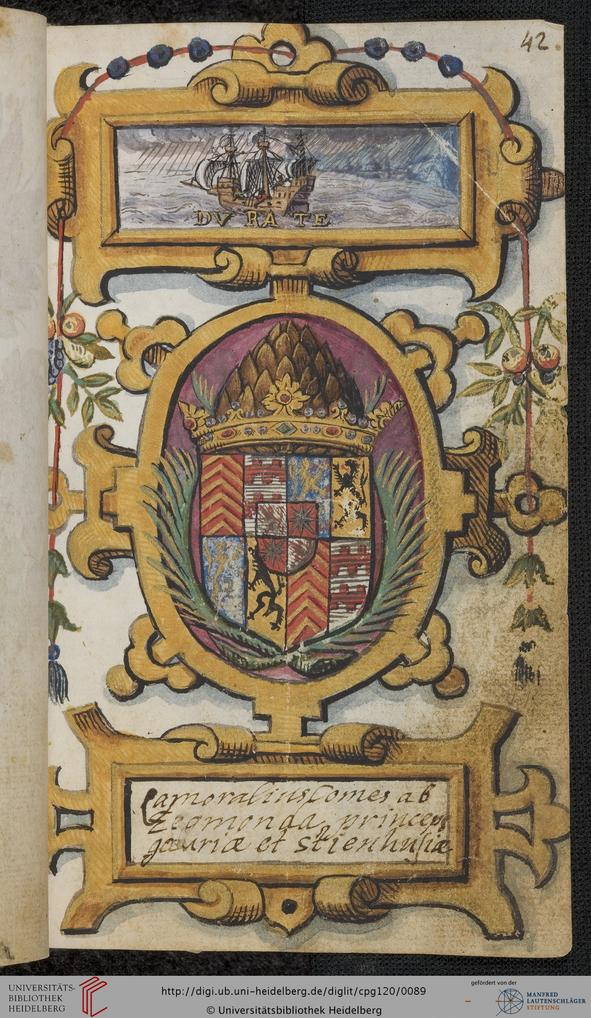 42
DVRATE
Camoralius Comes ab
Egmonda princeps
gauriæ et stienhusiæ
UNIVERSITÄTS-
BIBLIOTHEK
HEIDELBERG
http://digi.ub.uni-heidelberg.de/diglit/cpg120/0089
© Universitätsbibliothek Heidelberg
gefördert von der
MANFRED
LAUTENSCHLÄGER
STIFTUNG